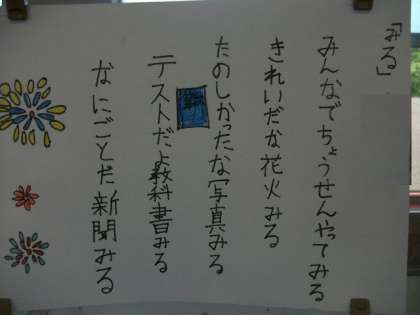 「みる」
みんなでちょうせんやってみる
きれいだな花火みる
たのしかったな写真みる
テストだよ教科書みる
なにごとだ新聞みる